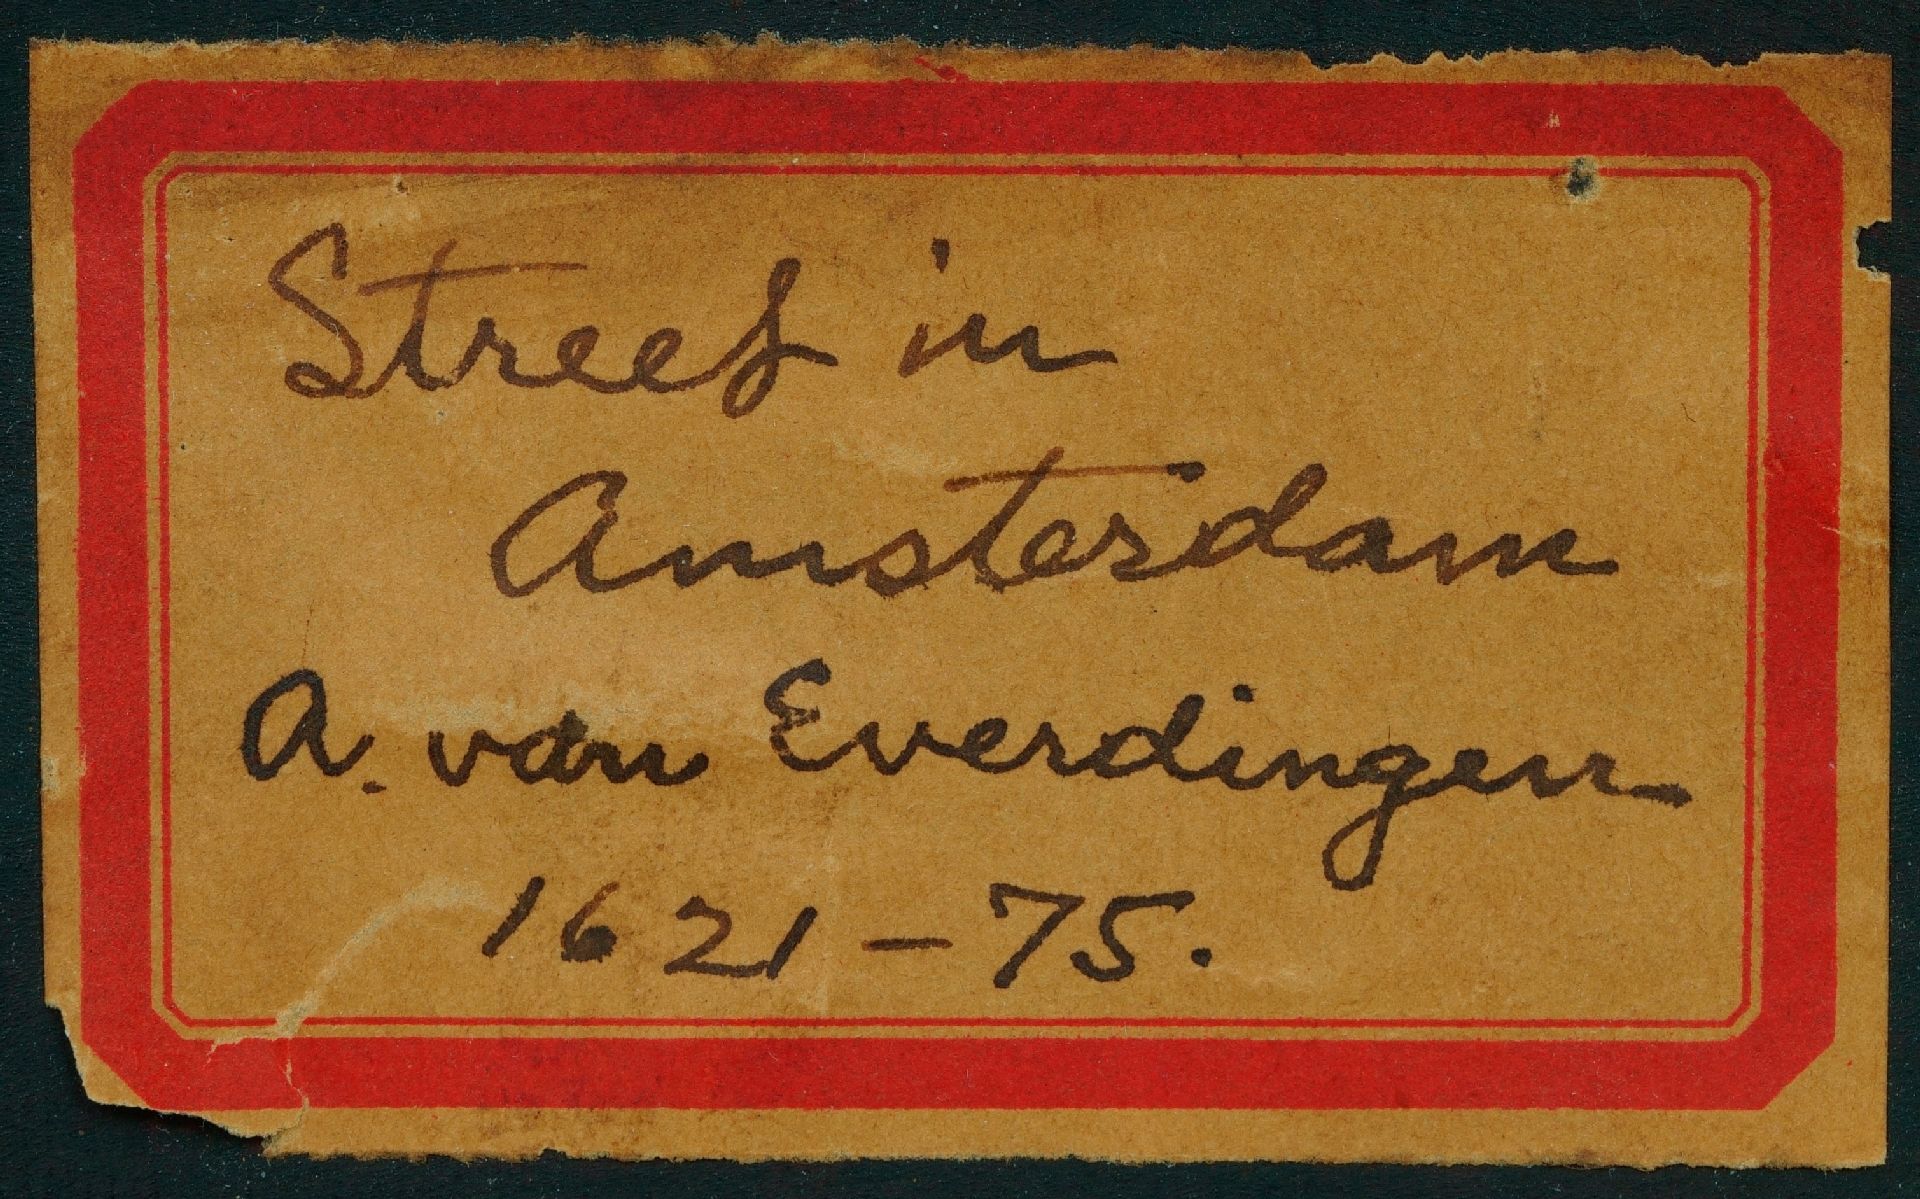 Street in
Amsterdam
A. van Everdingen
1621 - 75.